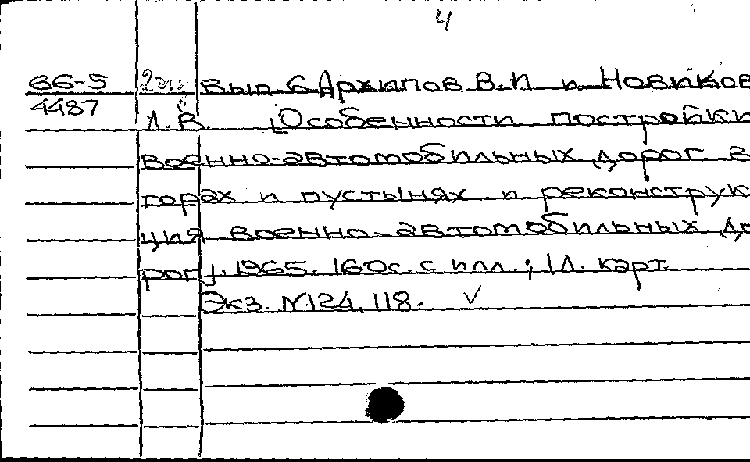 4
66-5 2эк. Вып 6 Архипов В.И и Новиков
4487 Л.В. [Особенности постройки
военно-автомобильных дорог в
горах и пустынях и реконструк
ция военно-автомобильных до
рог]. 1965. 160с. с илл.; 1л. карт.
Экз. №124, 118. √